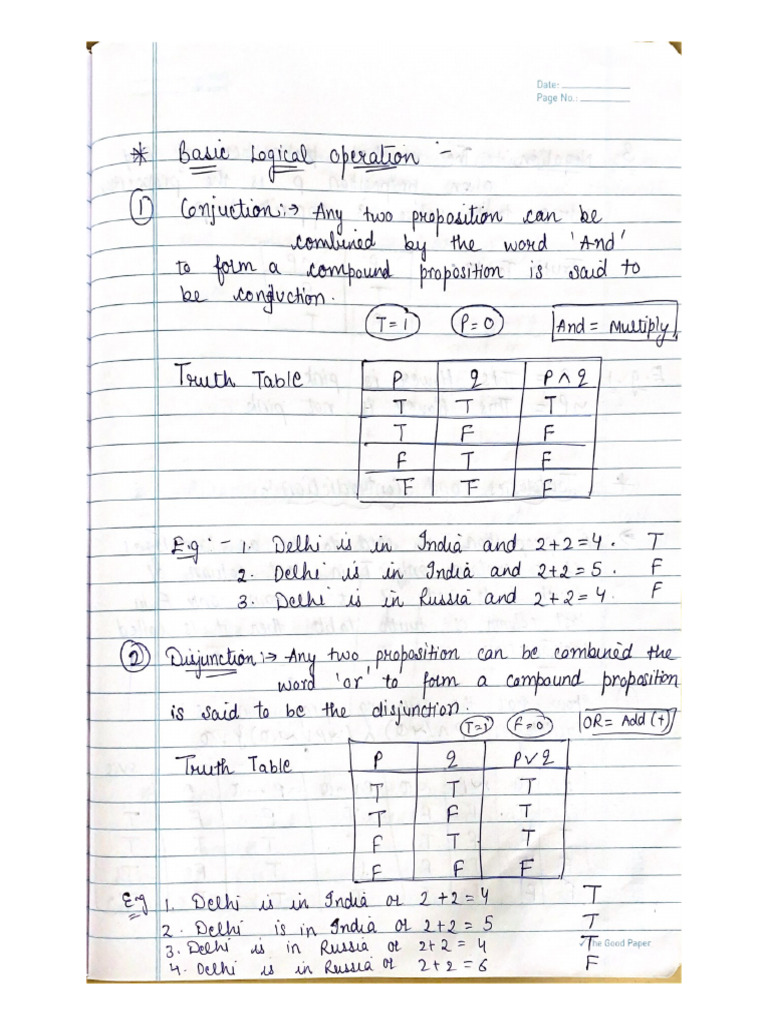 Date:
Page No.:
* Basic Logical Operation :-
① Conjuction :→ Any two proposition can be
combined by the word 'And'
to form a compound proposition is said to
be conjuction.
T=1 P=0 And = Multiply
Truth Table
P q P ∧ q
T T T
T F F
F T F
F F F
E.g :- 1. Delhi is in India and 2+2=4. T
2. Delhi is in India and 2+2=5. F
3. Delhi is in Russia and 2+2=4. F
② Disjunction :→ Any two proposition can be combined the
word 'or' to form a compound proposition
is said to be the disjunction.
T=1 F=0 OR = Add (+)
Truth Table
P q P∨q
T T T
T F T
F T T
F F F
E.g 1. Delhi is in India or 2+2=4 T
2. Delhi is in India or 2+2=5 T
3. Delhi is in Russia or 2+2=4 T
The Good Paper
4. Delhi is in Russia or 2+2=6 F